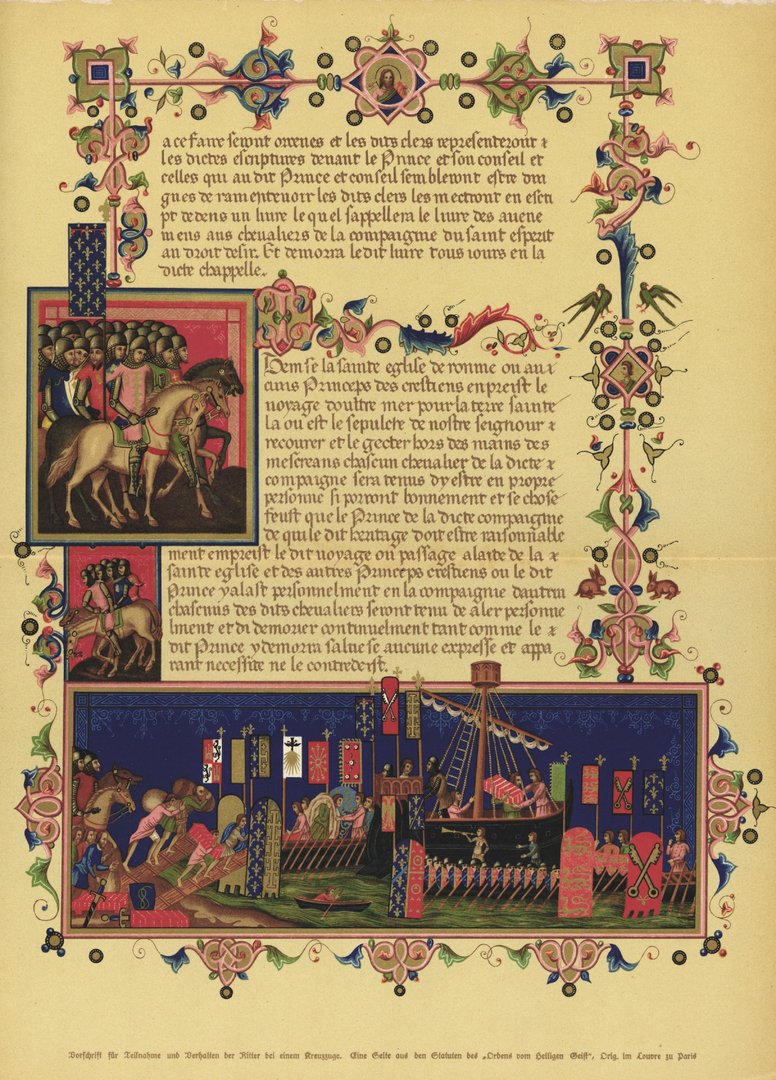 a ce faire seront ordenes et les dits clers representeront &
les dictes escriptures devant le Prince et son conseil et
celles qui au dit Prince et conseil sembleront estre din
gnes de ramentevoir les dits clers les mectront en escri
pt dedens un livre le quel sappellera le livre des avene
mens aus chevaliers de la compaignie du saint esperit
au droit desir. Et demorra le dit livre tous iours en la
dicte chappelle.
Item se la sainte eglise de romme ou au i
cuns Princeps des crestiens enpreist le
voyage doultre mer pour la terre sainte
la ou est le sepulcre de nostre seignour &
recouvrer et le gecter hors des mains des
mescreans chascun chevalier de la dicte &
compaignie sera tenus dy estre en propre
personne si porront bonnement et se chose
feust que le Prince de la dicte compaignie
de qui le dit heritage doit estre raisonnable
ment empreist le dit voyage ou passage a laide de la &
sainte eglise et des autres Princeps crestiens ou le dit
Prince y alast personnelment en la compaignie dautrui
chascuns des dits chevaliers seront tenu de aler personne
lment et di demorer continuelment tant comme le &
dit Prince y demorra salue se aucune expresse et appa
rant necessite ne le contredeist.
Vorschrift für Teilnahme und Verhalten der Ritter bei einem Kreuzzuge. Eine Seite aus den Statuten des „Ordens vom Heiligen Geist“, Orig. im Louvre zu Paris